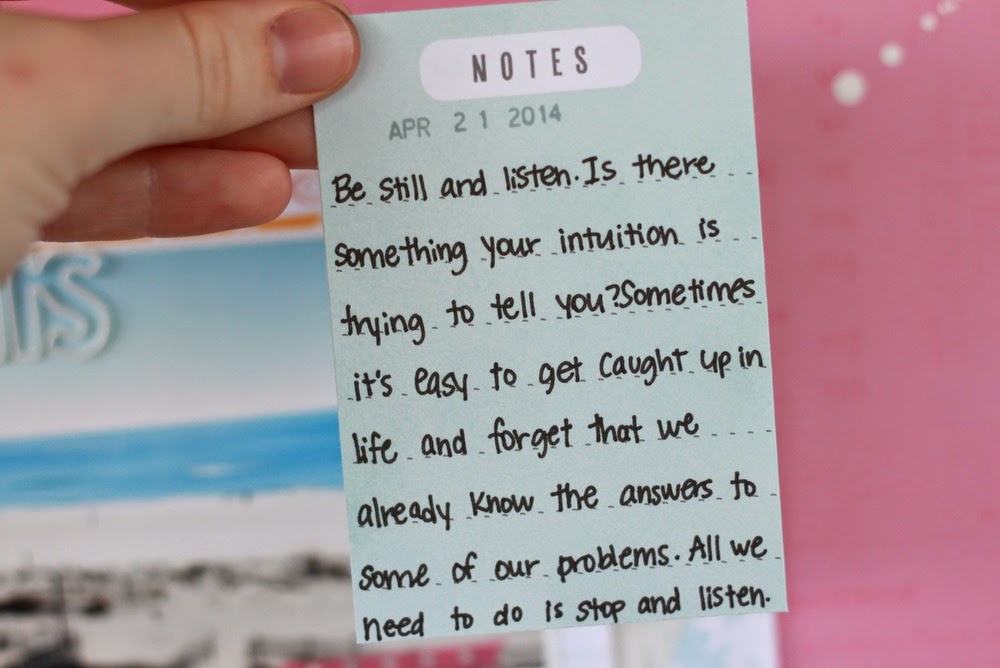 NOTES
APR 21 2014
Be still and listen. Is there
something your intuition is
trying to tell you? Sometimes
it's easy to get caught up in
life and forget that we
already know the answers to
some of our problems. All we
need to do is stop and listen.